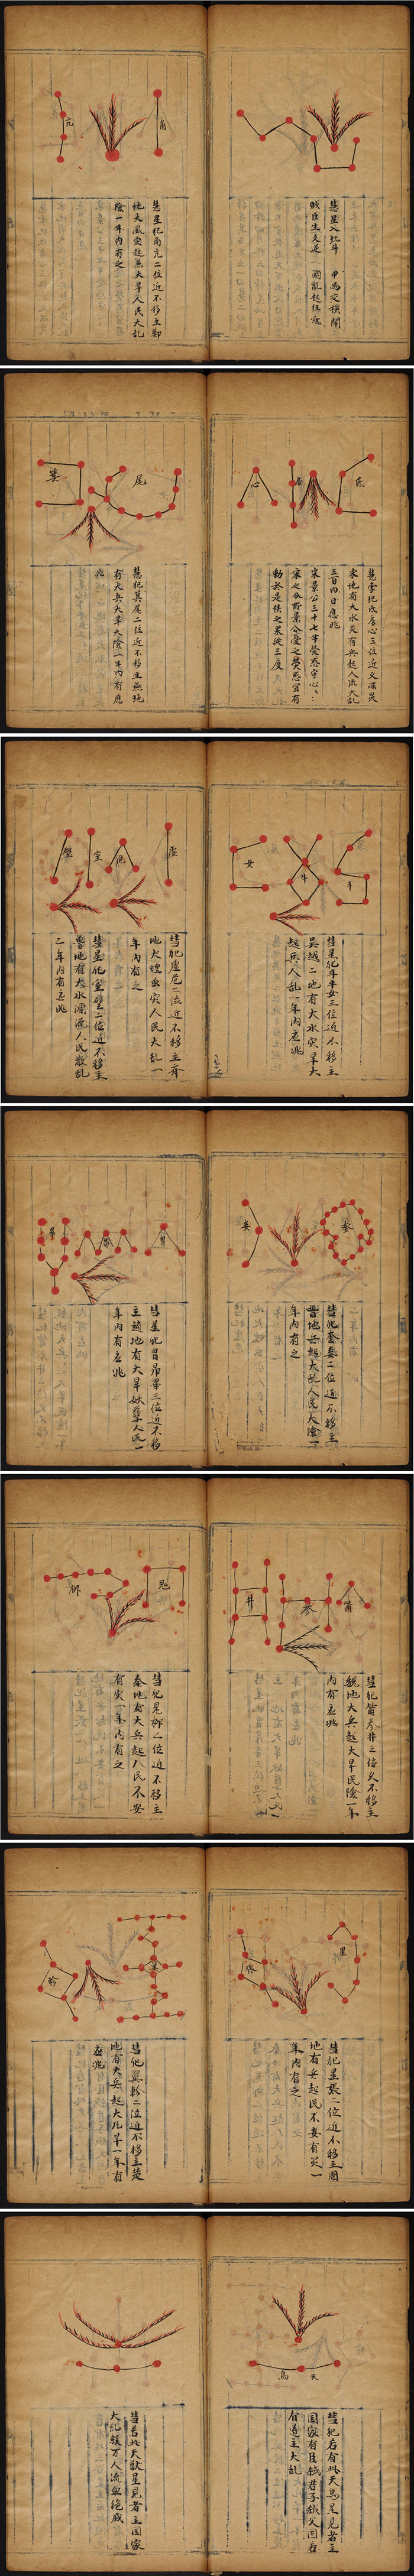 彗星入北斗　甲馬定橫閙
賊臣生叉逆　國亂起狂寇
角
亢
彗星犯角亢二位近不移主鄭
地大風突起無大旱人民大乱
陰一年內有之
氐
房
心
彗孛犯氐房心三位近久凛災
宋地有大水災有兵起人流大乱
三百內日應兆
宋景公三十七年熒惑守心
宋之分野景公憂之熒惑宜有
動於是候之果徙三度
尾
箕
彗犯箕尾二位近不移主燕地
有大兵大旱大陰一年內有應
兆
斗
牛
女
彗星犯斗牛女三位近不移主
吳越二地有大水災旱大
越兵人乱一年內应兆
虛
危
室
壁
彗犯虛危二位近不移主齊
地大蝗虫灾人民大乱一
年內有之
彗星犯室壁二位近不移主
魯地有大水漂流人民散乱
二年內有应兆
奎
婁
彗星犯奎婁二位近不移主
魯地兵起大乱人民大陰一
年內有之
胃
昴
畢
彗星犯胃昴畢三位近不移
主趙地有大旱妖孽人民一
年內有应兆
觜
参
井
彗犯觜参井三位久不移主
魏地大兵起大旱民陰一年
內有应兆
鬼
柳
彗犯鬼柳二位近不移主
秦地有大兵起人民不安
有灾一年內有之
星
張
彗犯星張二位近不移主周
地有兵起民不安有災一
年內有之
翼
軫
彗犯翼軫二位近不移主楚
地有大兵起大凡旱一年有
应兆
天鳥
彗犯若有此天鳥星見者主
国家有臣弑君子弑父国若
有道主大乱
彗若此天獄星見者主国家
大乱積万人流血绝滅